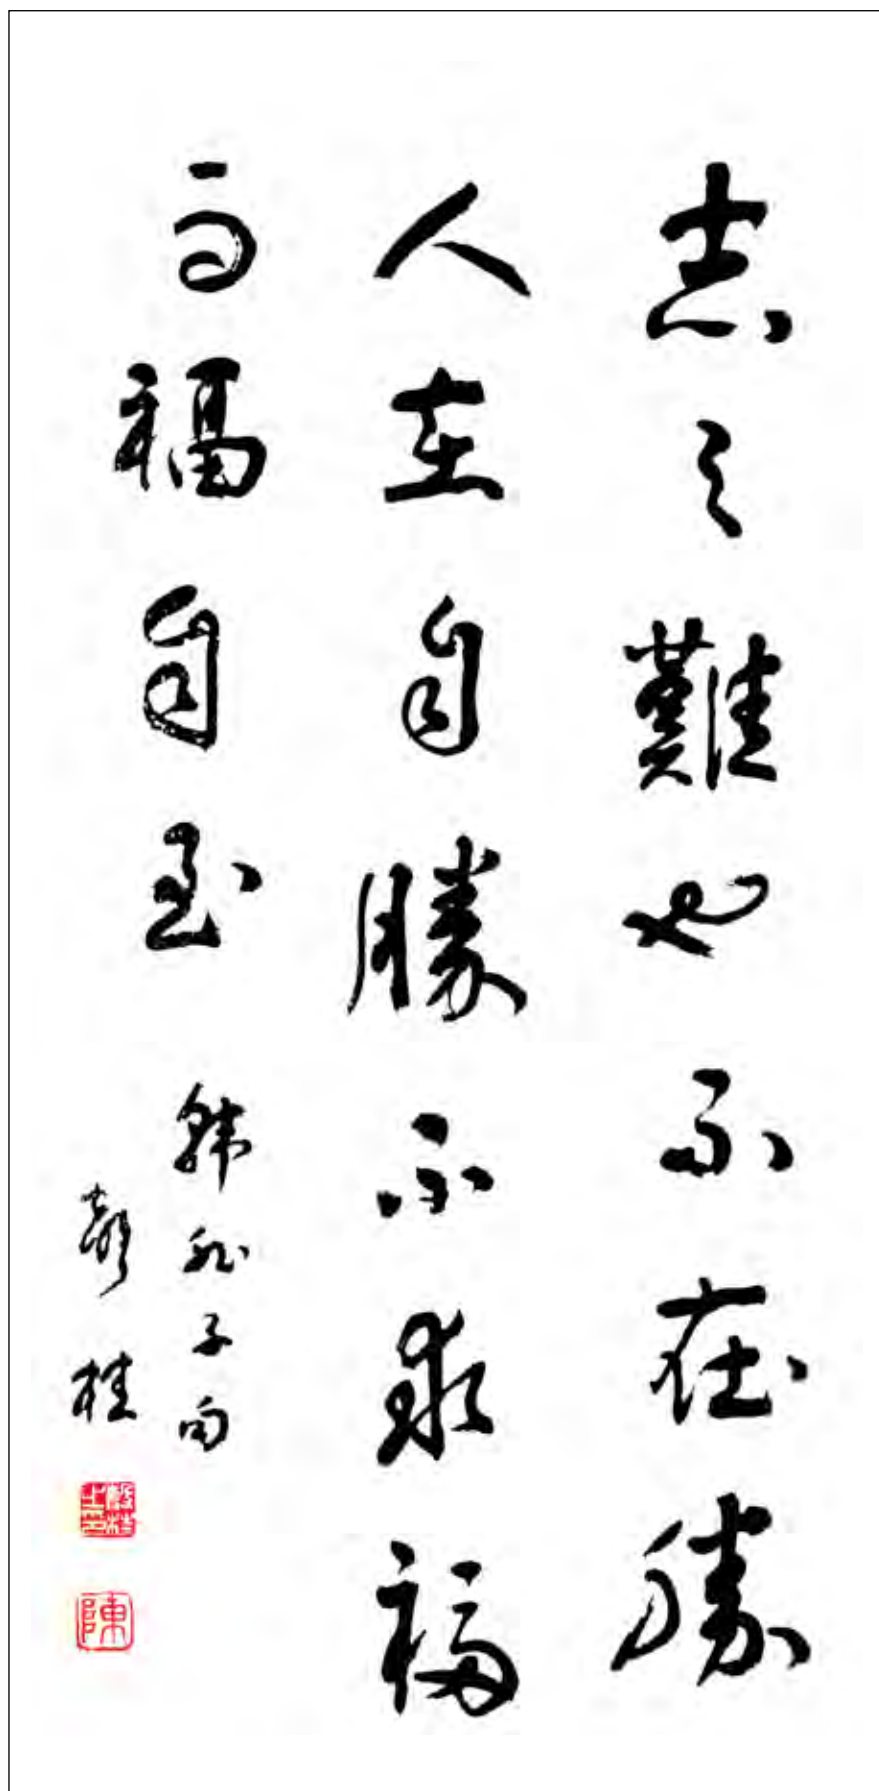 志之難也不在勝
人在自勝不求福
而福自至
韓非子句
桂
陳